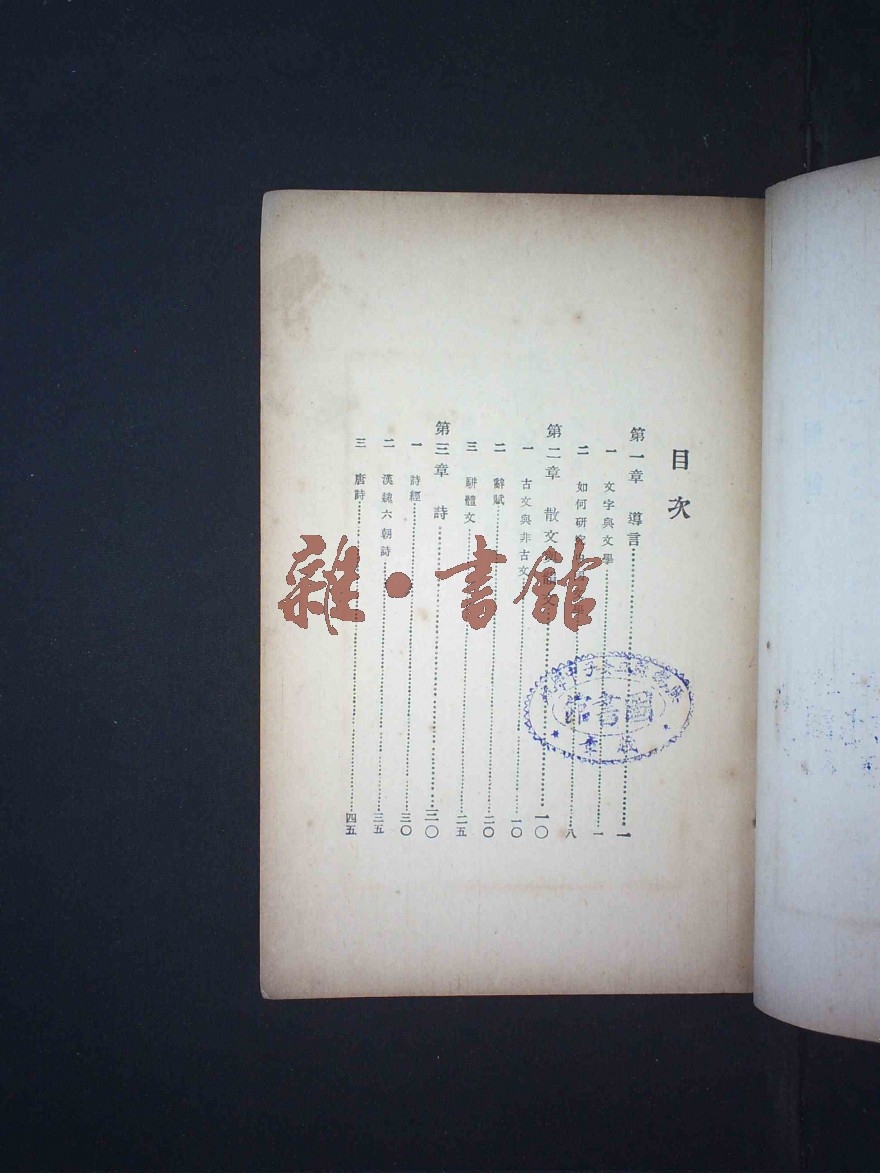 目次
第一章 導言 一
一 文字與文學 一
二 如何研究 八
第二章 散文 一〇
一 古文與非古文 一〇
二 辭賦 二〇
三 駢體文 二五
第三章 詩 三〇
一 詩經 三〇
二 漢魏六朝詩 三五
三 唐詩 四五
雜·書館
圖書館